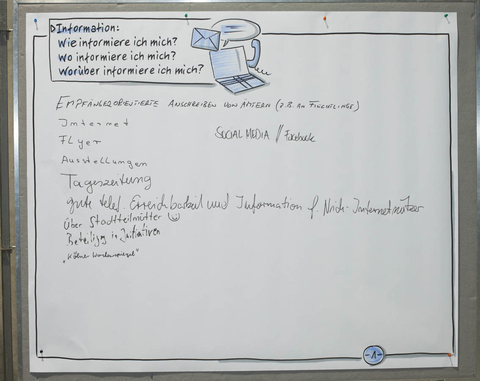 Information:
Wie informiere ich mich?
Wo informiere ich mich?
Worüber informiere ich mich?
EMPFÄNGERORIENTIERTE ANSCHREIBEN VON ÄMTERN (Z.B. AN FLÜCHTLINGE)
Internet
SOCIAL MEDIA // Facebook
Flyer
Ausstellungen
Tageszeitung
gute telef. Erreichbarkeit und Information f. Nicht-Internetnutzer
Über Stadtteilmütter
Beteiligung in Initiativen
"Kölner Wochenspiegel"
-1-